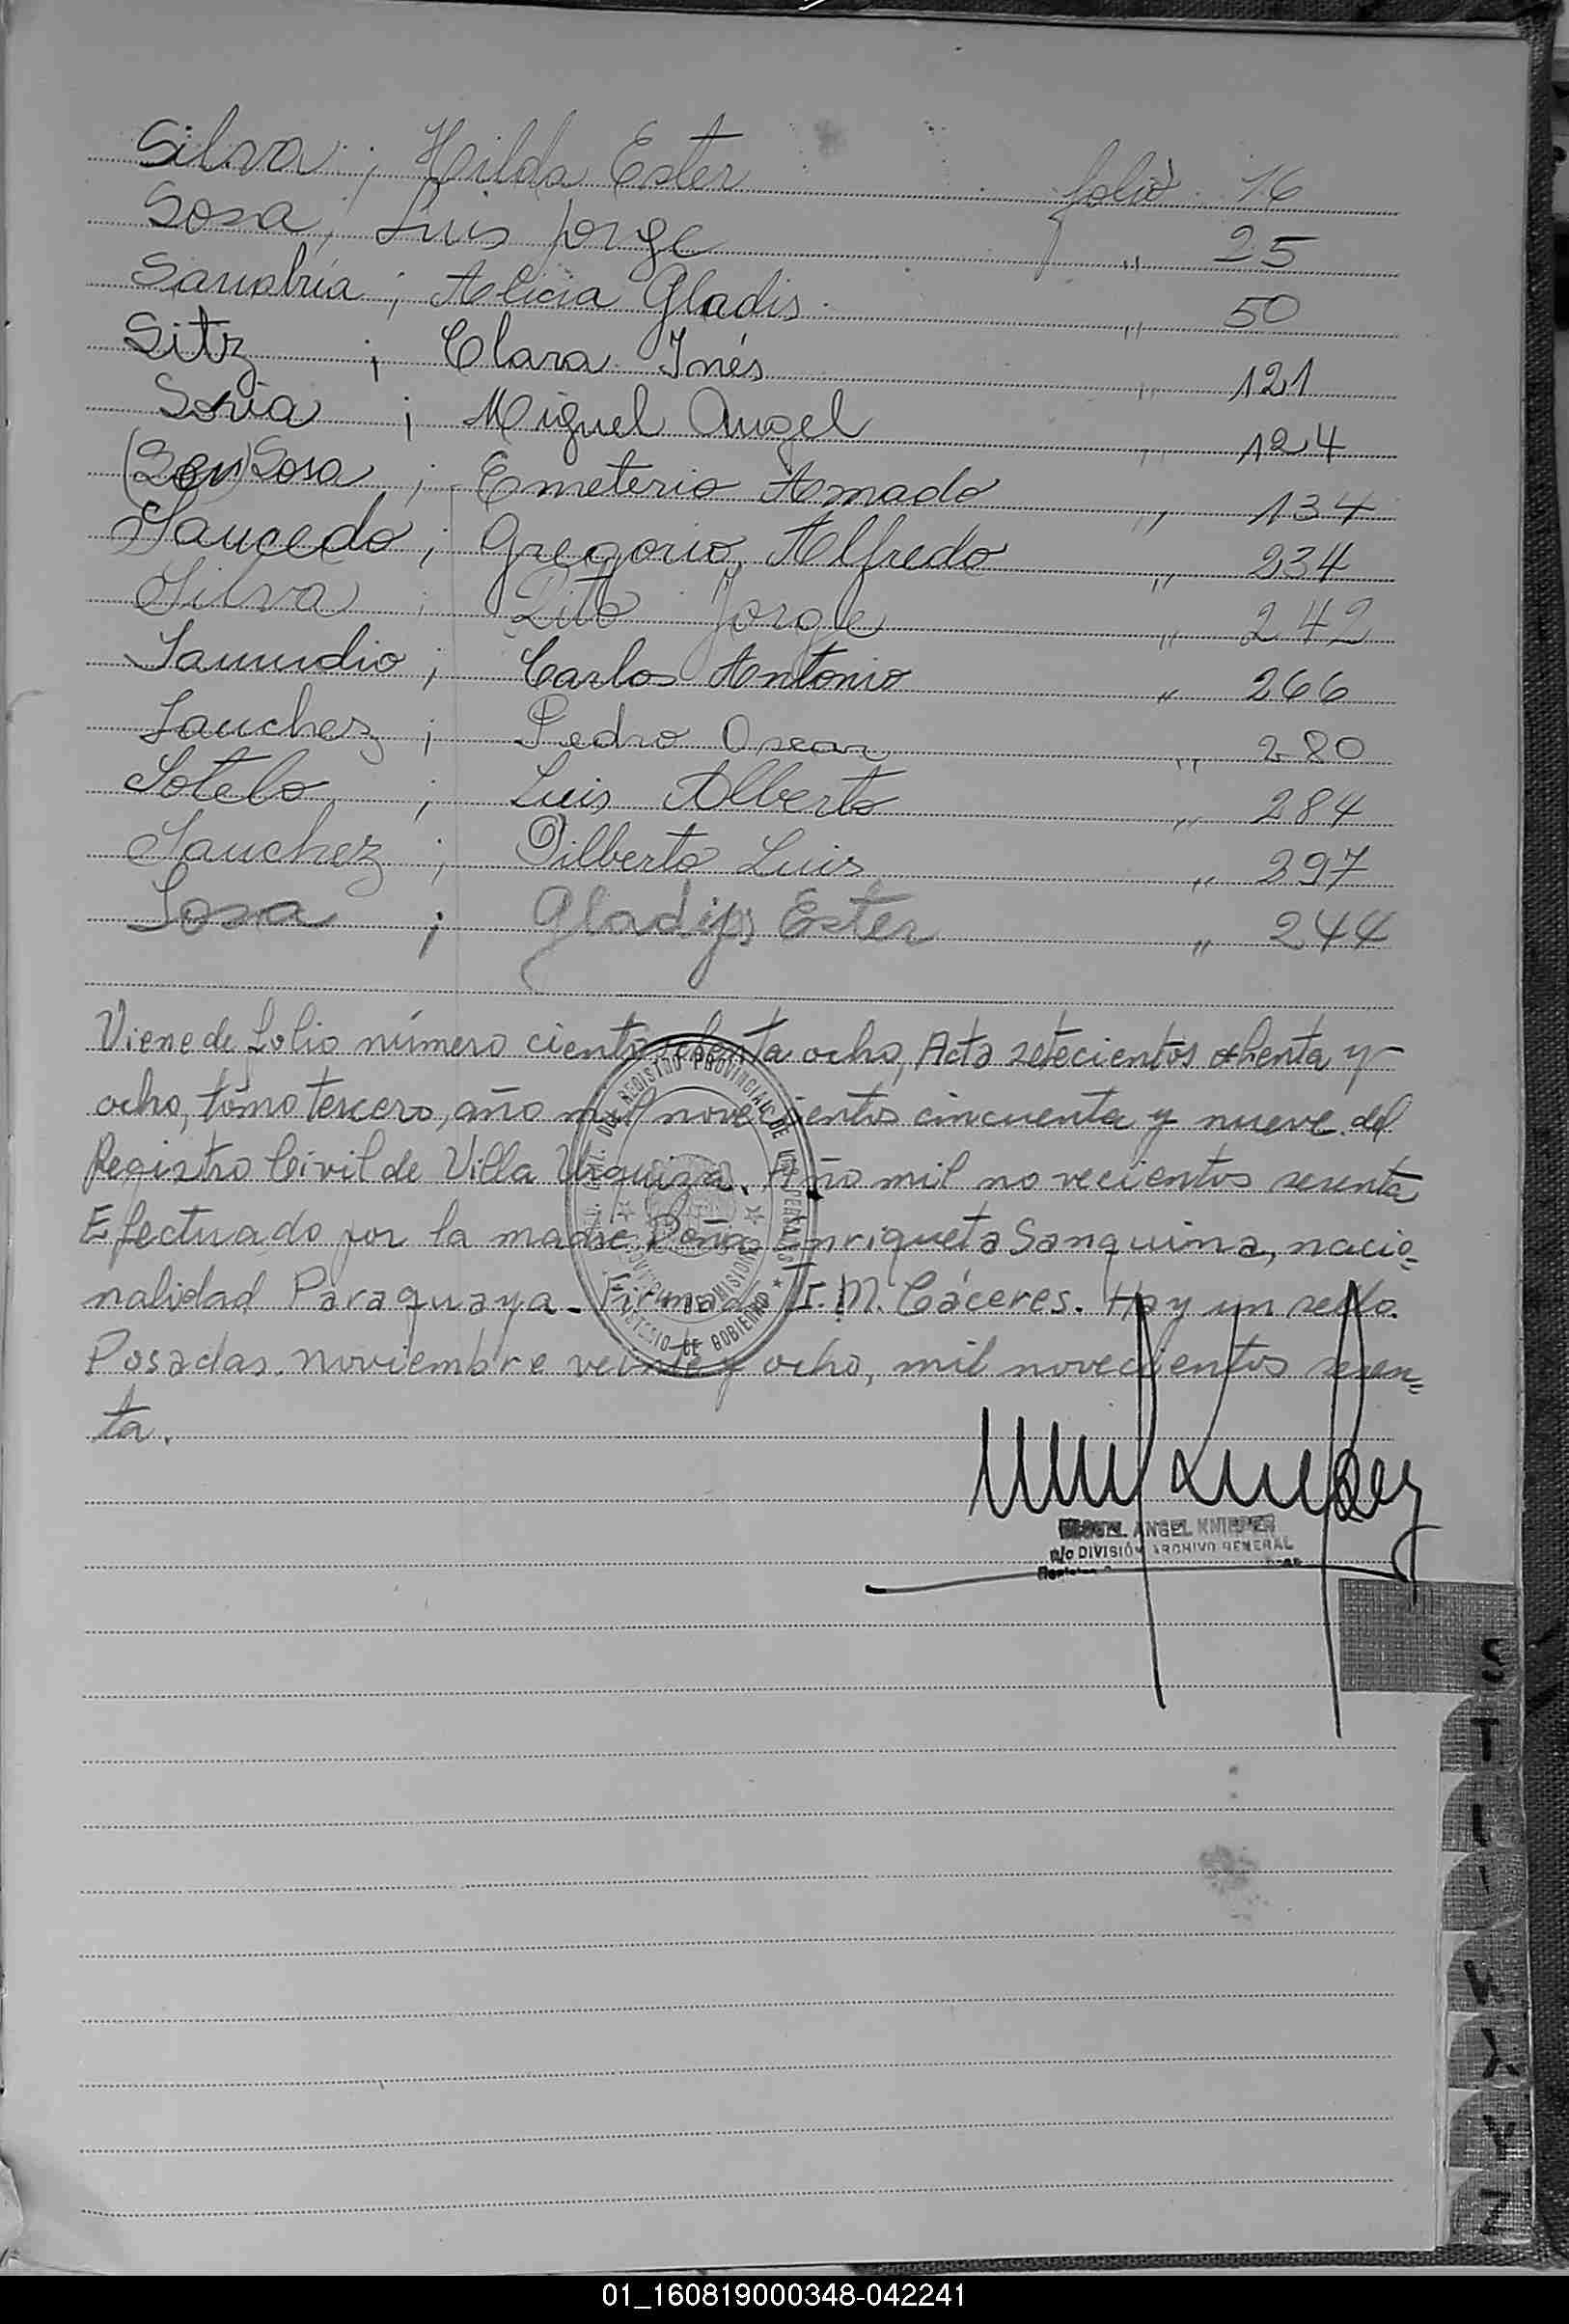 Silva ; Hilda Ester folio 16
Sosa ; Luis Jorge " 25
Sanabria ; Alicia Gladis " 50
Sitz ; Clara Inés " 121
Soria ; Miguel Angel " 124
Sosa ; Emeterio Amado " 134
Saucedo ; Gregorio Alfredo " 234
Silva ; Lito Jorge " 242
Samudio ; Carlos Antonio " 266
Sanchez ; Pedro Oscar " 280
Sotelo ; Luis Alberto " 284
Sanchez ; Gilberto Luis " 297
Sosa ; Gladys Ester " 244
Viene de folio número ciento ocho, Acta setecientos ochenta y
ocho, tomo tercero, año mil novecientos cincuenta y nueve del
Registro Civil de Villa Urquiza. Año mil novecientos sesenta
Efectuado por la madre Doña Enriqueta Sanquina, nacio=
nalidad Paraguaya. Firmado I. M. Cáceres. Hay un sello.
Posadas, noviembre veinte y ocho, mil novecientos sesen=
ta.
REGISTRO PROVINCIAL DE
MISIONES
DE GOBIERNO
ANGEL KNIEPER
DIVISIÓN ARCHIVO GENERAL
S
T
Y
Z
01_160819000348-042241